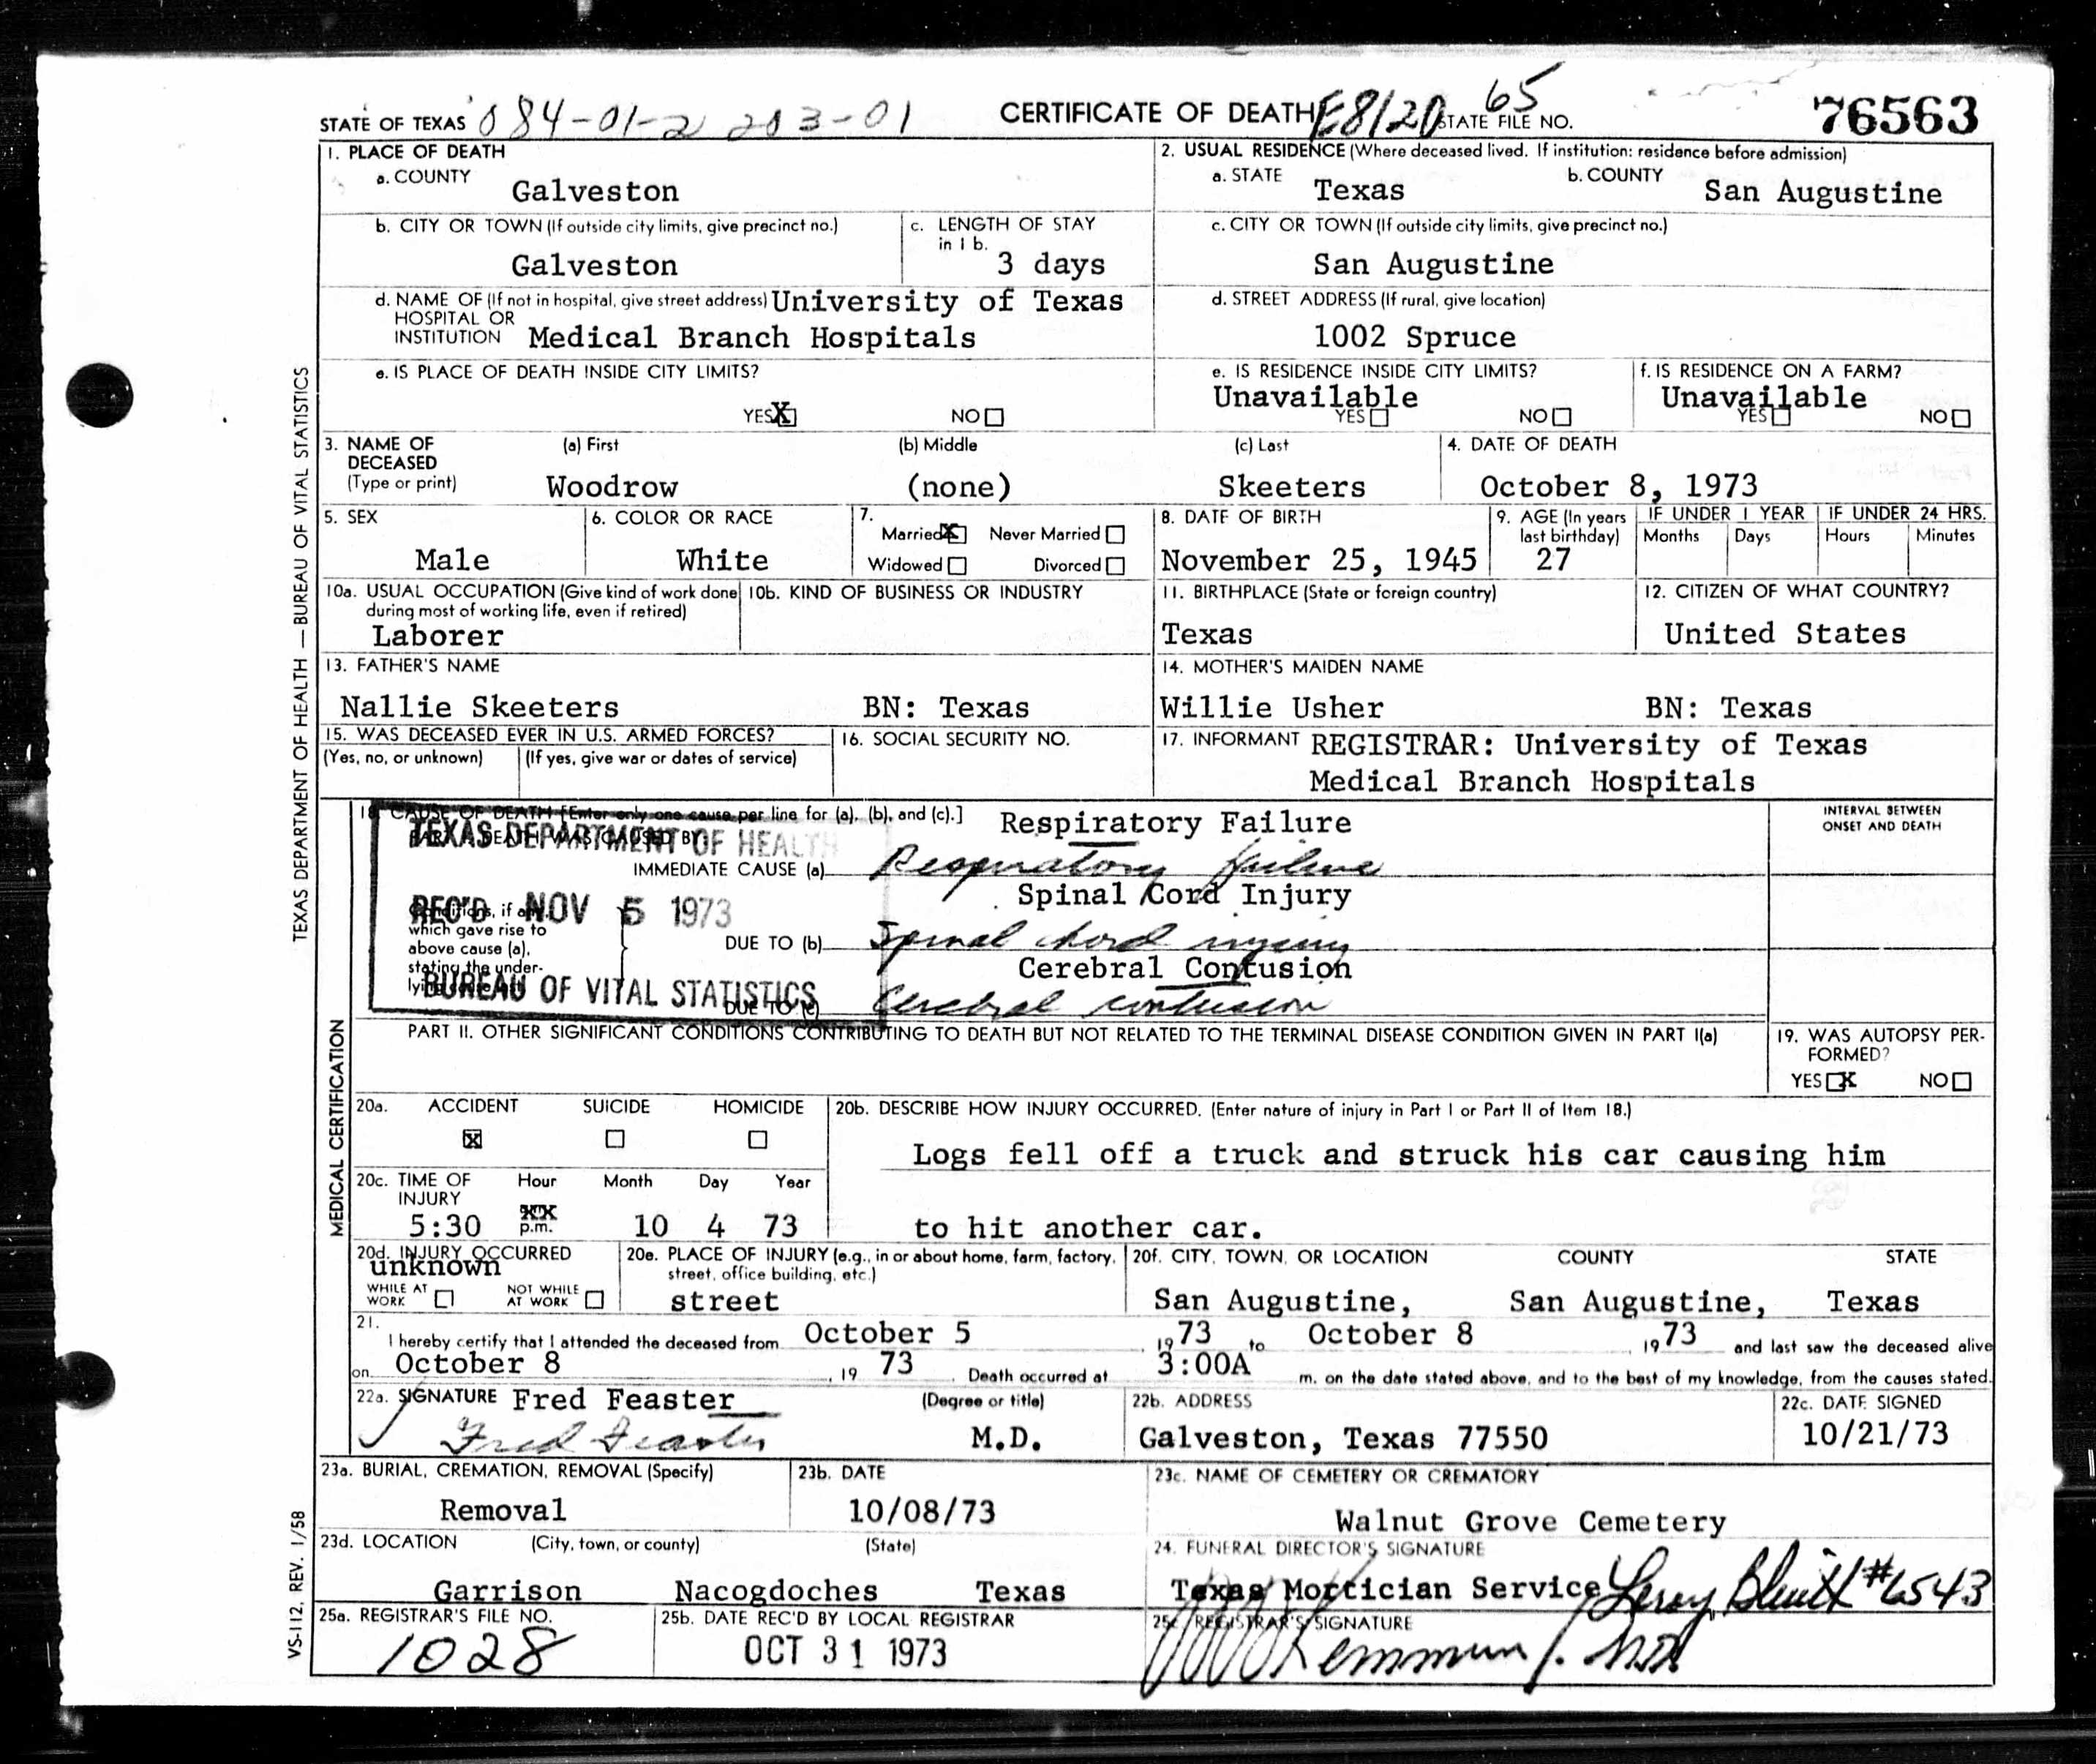 STATE OF TEXAS 084-01-2 203-01 CERTIFICATE OF DEATH E8120 65 STATE FILE NO. 76563
1. PLACE OF DEATH
a. COUNTY Galveston
2. USUAL RESIDENCE (Where deceased lived. If institution: residence before admission)
a. STATE Texas b. COUNTY San Augustine
b. CITY OR TOWN (If outside city limits, give precinct no.) Galveston
c. LENGTH OF STAY in 1 b. 3 days
c. CITY OR TOWN (If outside city limits, give precinct no.)
San Augustine
d. NAME OF (If not in hospital, give street address) University of Texas
HOSPITAL OR
INSTITUTION Medical Branch Hospitals
d. STREET ADDRESS (If rural, give location)
1002 Spruce
e. IS PLACE OF DEATH INSIDE CITY LIMITS?
YES X NO
e. IS RESIDENCE INSIDE CITY LIMITS?
Unavailable
YES NO
f. IS RESIDENCE ON A FARM?
Unavailable
YES NO
3. NAME OF DECEASED (Type or print)
(a) First (b) Middle (c) Last
Woodrow (none) Skeeters
4. DATE OF DEATH
October 8, 1973
5. SEX
Male
6. COLOR OR RACE
White
7.
Married X Never Married
Widowed Divorced
8. DATE OF BIRTH
November 25, 1945
9. AGE (In years last birthday)
27
IF UNDER 1 YEAR
Months Days
IF UNDER 24 HRS.
Hours Minutes
10a. USUAL OCCUPATION (Give kind of work done
during most of working life, even if retired)
Laborer
10b. KIND OF BUSINESS OR INDUSTRY
11. BIRTHPLACE (State or foreign country)
Texas
12. CITIZEN OF WHAT COUNTRY?
United States
13. FATHER'S NAME
Nallie Skeeters BN: Texas
14. MOTHER'S MAIDEN NAME
Willie Usher BN: Texas
15. WAS DECEASED EVER IN U.S. ARMED FORCES?
(Yes, no, or unknown) (If yes, give war or dates of service)
16. SOCIAL SECURITY NO.
17. INFORMANT REGISTRAR: University of Texas
Medical Branch Hospitals
18. CAUSE OF DEATH [Enter only one cause per line for (a), (b), and (c).]
TEXAS DEPARTMENT OF HEALTH
REC'D NOV 5 1973
BUREAU OF VITAL STATISTICS
Respiratory Failure
IMMEDIATE CAUSE (a) Respiratory failure
Conditions, if any,
which gave rise to
above cause (a),
stating the under-
Spinal Cord Injury
DUE TO (b) Spinal chord injury
Cerebral Contusion
DUE TO (c) Cerebral contusion
INTERVAL BETWEEN
ONSET AND DEATH
PART II. OTHER SIGNIFICANT CONDITIONS CONTRIBUTING TO DEATH BUT NOT RELATED TO THE TERMINAL DISEASE CONDITION GIVEN IN PART I(a)
19. WAS AUTOPSY PER-
FORMED?
YES X NO
20a. ACCIDENT SUICIDE HOMICIDE
X
20b. DESCRIBE HOW INJURY OCCURRED. (Enter nature of injury in Part I or Part II of Item 18.)
Logs fell off a truck and struck his car causing him
to hit another car.
20c. TIME OF INJURY Hour Month Day Year
5:30 XX p.m. 10 4 73
20d. INJURY OCCURRED
unknown
WHILE AT WORK NOT WHILE AT WORK
20e. PLACE OF INJURY (e.g., in or about home, farm, factory,
street, office building, etc.)
street
20f. CITY, TOWN, OR LOCATION COUNTY STATE
San Augustine, San Augustine, Texas
21.
I hereby certify that I attended the deceased from October 5, 1973 to October 8, 1973 and last saw the deceased alive
on October 8, 19 73. Death occurred at 3:00A m. on the date stated above, and to the best of my knowledge, from the causes stated.
22a. SIGNATURE Fred Feaster (Degree or title)
Fred Feaster M.D.
22b. ADDRESS
Galveston, Texas 77550
22c. DATE SIGNED
10/21/73
23a. BURIAL, CREMATION, REMOVAL (Specify)
Removal
23b. DATE
10/08/73
23c. NAME OF CEMETERY OR CREMATORY
Walnut Grove Cemetery
23d. LOCATION (City, town, or county) (State)
Garrison Nacogdoches Texas
24. FUNERAL DIRECTOR'S SIGNATURE
Texas Mortician Service Leroy #6543
25a. REGISTRAR'S FILE NO.
1028
25b. DATE REC'D BY LOCAL REGISTRAR
OCT 31 1973
25c. REGISTRAR'S SIGNATURE
TEXAS DEPARTMENT OF HEALTH — BUREAU OF VITAL STATISTICS
MEDICAL CERTIFICATION
VS-112, REV. 1/58